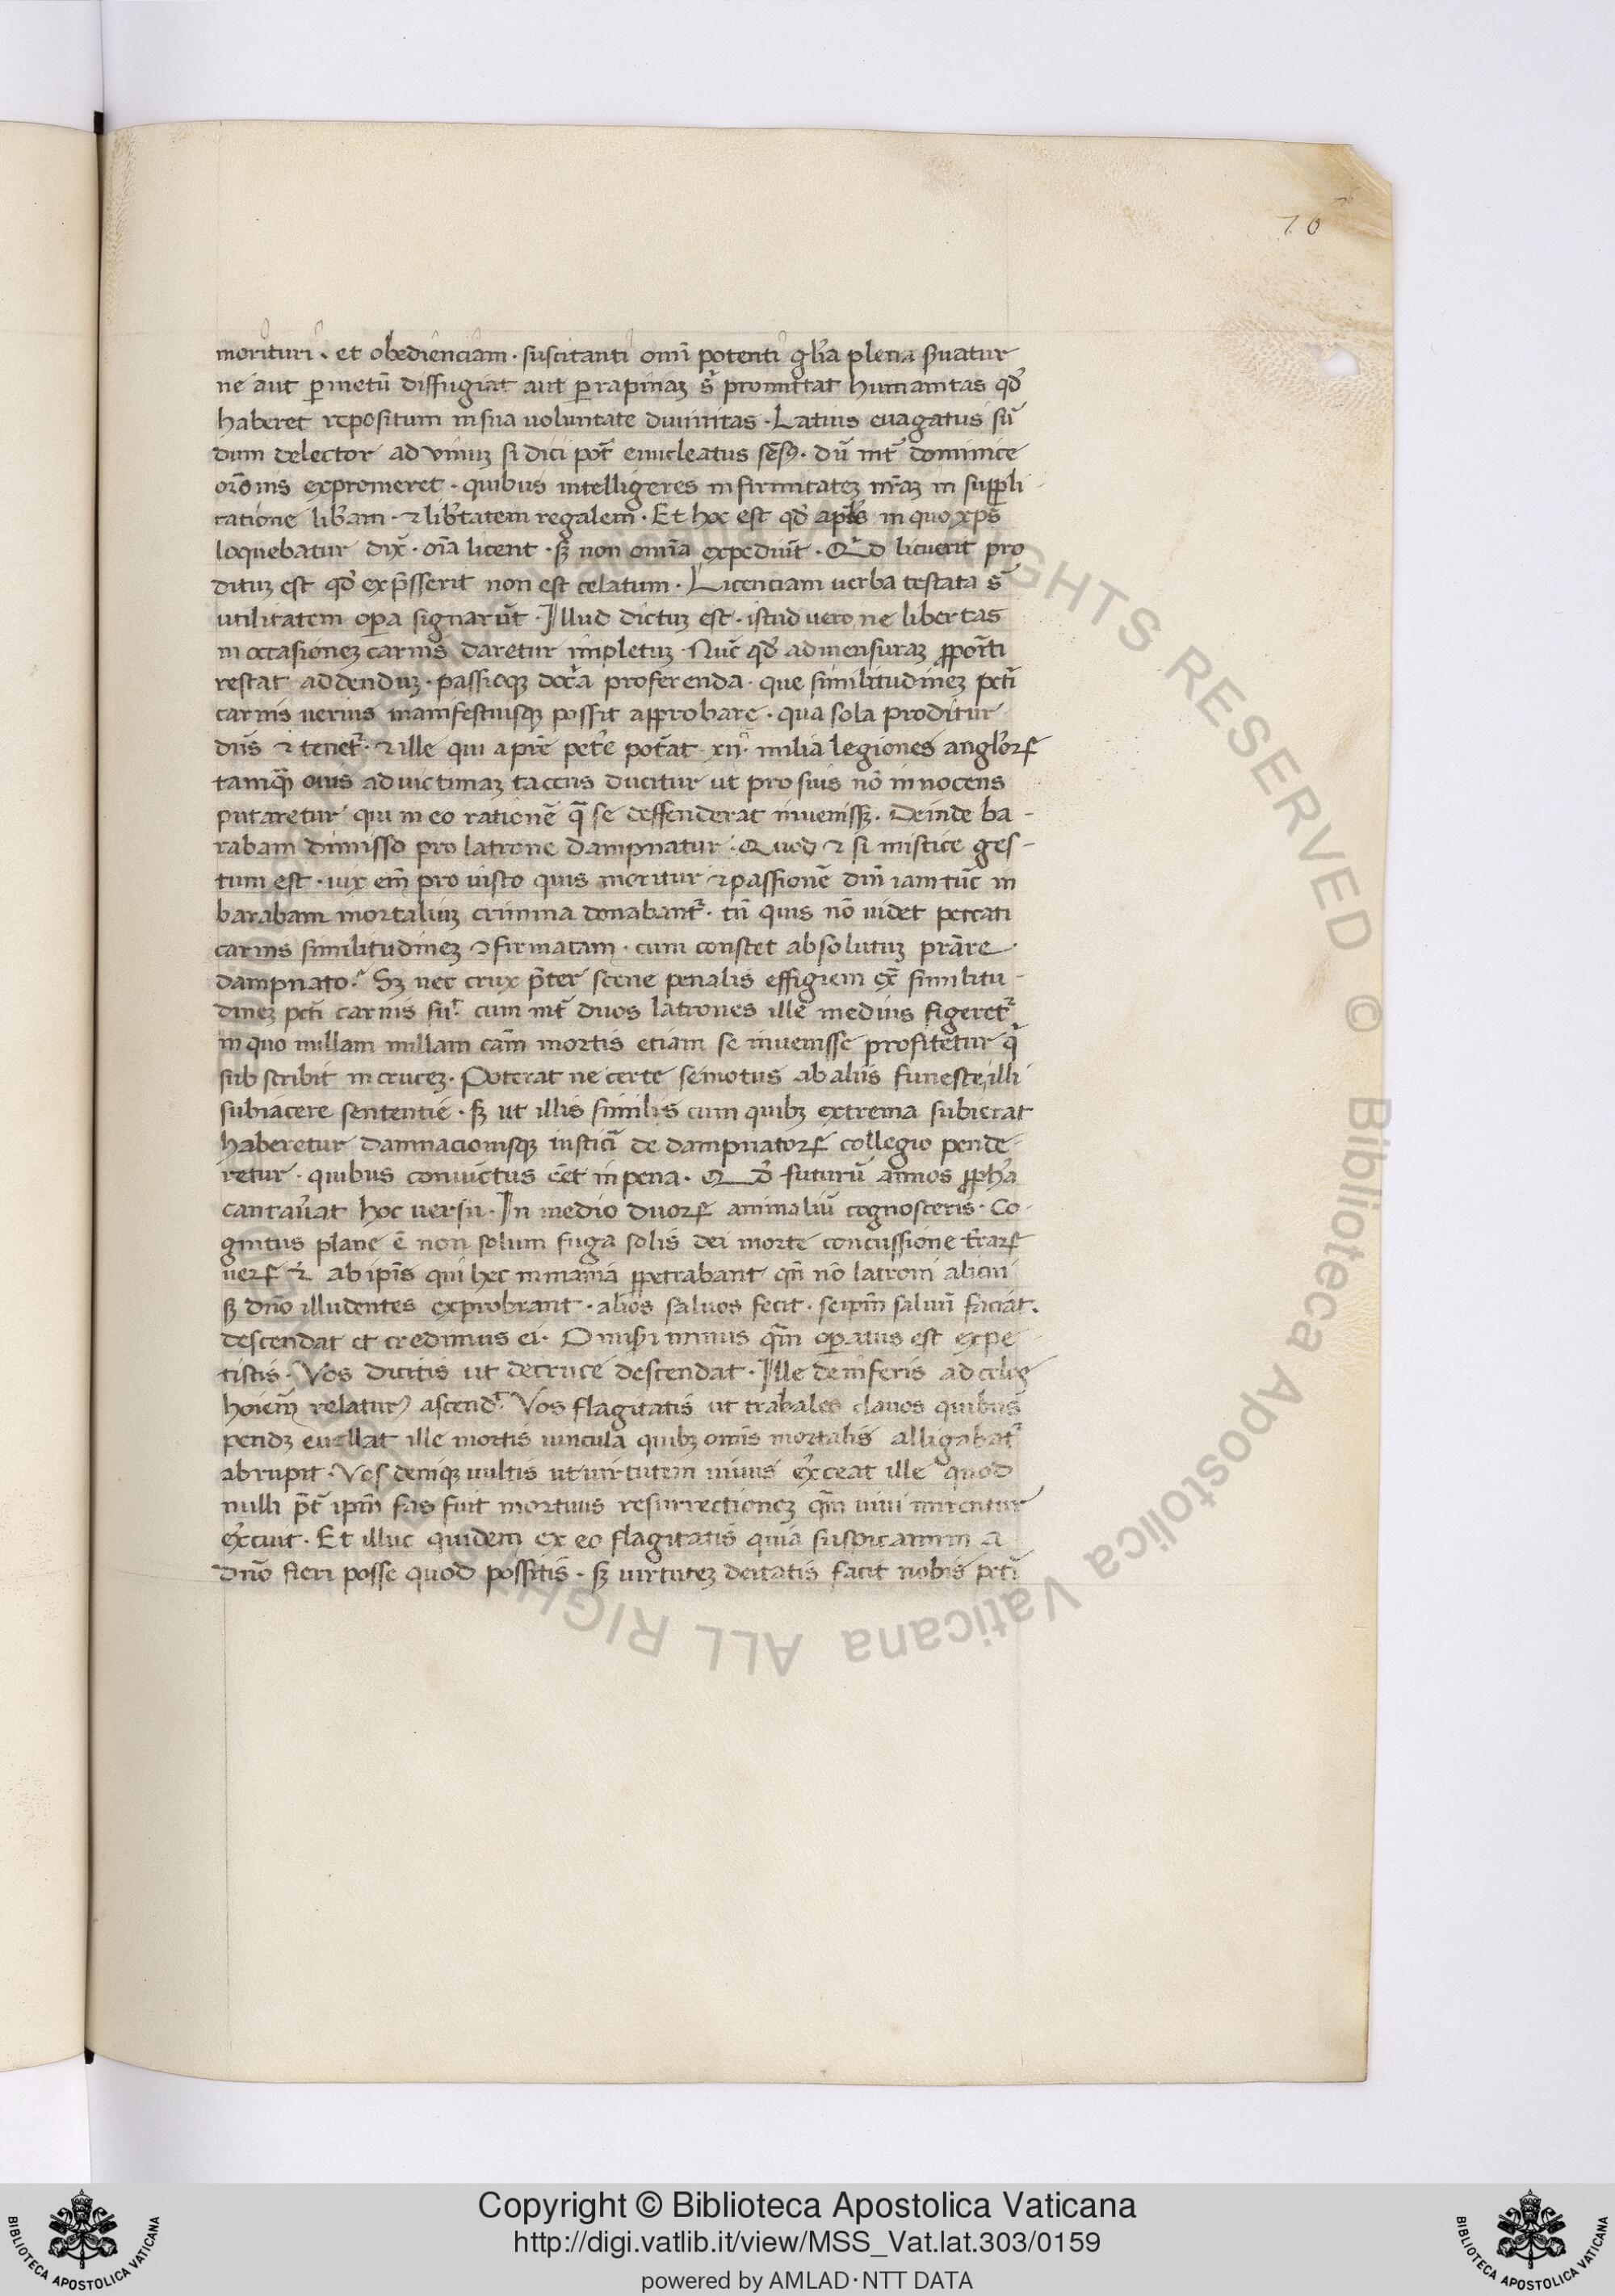 70
morituri. et obediencĩam · suscitanti omĩ potenti gl̃ia plena s̃uatur
ne aut p̱ metũ diffugiat aut p̱ rapinaꝫ s̃ promittat humanitas qđ
haberet repositum in sua voluntate divinitas · Latius euagatus sũ
dum delector ad vinuꝫ si dici põt enucleatus sẽsꝰ · dũ int̃ dominice
or̃onis expromeret · quibus intelligeres infirmitateꝫ nr̃aꝫ in suppli
catione lib̃am · ⁊ lib̃tatem regalem · Et hoc est qđ apl̃s in quo xp̃s
loquebatur dix̃ · oĩa licent · sꝫ non omĩa expediũt · Qđ licuerit pro
dituꝫ est qđ exp̃sserit non est celatum · Licenciam verba testata s̃
utilitatem op̱a signarũt · Illud dictuꝫ est · istud vero ne libertas
in occasioneꝫ carnis daretur impletuꝫ Nũc qđ ad mensuraꝫ ꝓpor̃ti
restat addenduꝫ · passioqꝫ doc̃a proferenda · que similitudineꝫ pcti
carnis uerius manifestiusqꝫ possit approbare · qua sola proditur
dñs ⁊ tenet᷑ · ⁊ ille qui a pr̃e pet̃e pot̃at xii · milia legiones angl̃oꝝ
tamqꝫ ouis ad uictimaꝫ tacens ducitur ut pro suis nõ innocens
putaretur qui in eo rationẽ q̃ se deffenderat inuenissꝫ · Deinde ba-
rabam dimisso pro latrone dampnatur · Quod ⁊ si mistice ges-
tum est · uix em̃ pro iusto quis moritur ⁊ passionẽ dñi iam tũc in
barabam mortaliuꝫ crimina donabant᷑ · tñ quis nõ uidet peccati
carnis similitudineꝫ ꝯfirmatam · cum constet absolutuꝫ
dampnato · Sꝫ nec crux p̃ter scene penalis effigiem ex̃ similitu-
dineꝫ pcti carnis fu᷑ · cum int̃ duos latrones ille medius figeret᷑
in quo nullam nullam cãm mortis etiam se inuenisse profitetur q̃
subscribit in cruceꝫ · Poterat ne certe semotus ab aliis funeste illi
subiacere sententie · sꝫ ut illis similis cum quibꝫ extrema subierat
haberetur damnacionisqꝫ de dampnatoꝝ collegio pende-
retur · quibus conuictus eẽt in pena · Qđ futurũ annos ꝓph̃a
cantau̾at hoc uersu · In medio duoꝝ animaliũ cognosceris · Co-
gnitus plane ẽ non solum fuga solis dei morte concussione t̃raꝝ
ueꝝ ⁊ ab ip̃is qui hec inmania ꝑpetrabant qñ nõ latroni alicui
sꝫ dño illudentes exprobrant · alios saluos fecit · seip̃m saluũ faciat.
descendat et credimus ei · O mis̃i minus qm̃ op̱atus est expe-
tistis · Vos dicitis ut de cruce descendat · Ille de inferis ad celos
hoĩem relaturꝰ ascend᷑ · Vos flagitatis ut trabales clauos quibus
pendꝫ euellat ille mortis uincula quibꝫ omĩs mortalis alligabat᷑
abrupit · Vos deniqꝫ uultis ut uirtutem uiuus ex̃ceat ille quod
nulli p̃t ip̃m fas fuit mortuus resurrectioneꝫ qm̃ uiui mirentur
ex̃cuit · Et illuc quidem ex eo flagitatis quia suspicamini a
dño fieri posse quod possitis · sꝫ uirtuteꝫ deitatis facit nobis pcti
Copyright © Biblioteca Apostolica Vaticana
http://digi.vatlib.it/view/MSS_Vat.lat.303/0159
powered by AMLAD · NTT DATA
BIBLIOTECA APOSTOLICA VATICANA
BIBLIOTECA APOSTOLICA VATICANA
ALL RIGHTS RESERVED © Biblioteca Apostolica Vaticana ALL RIGHTS